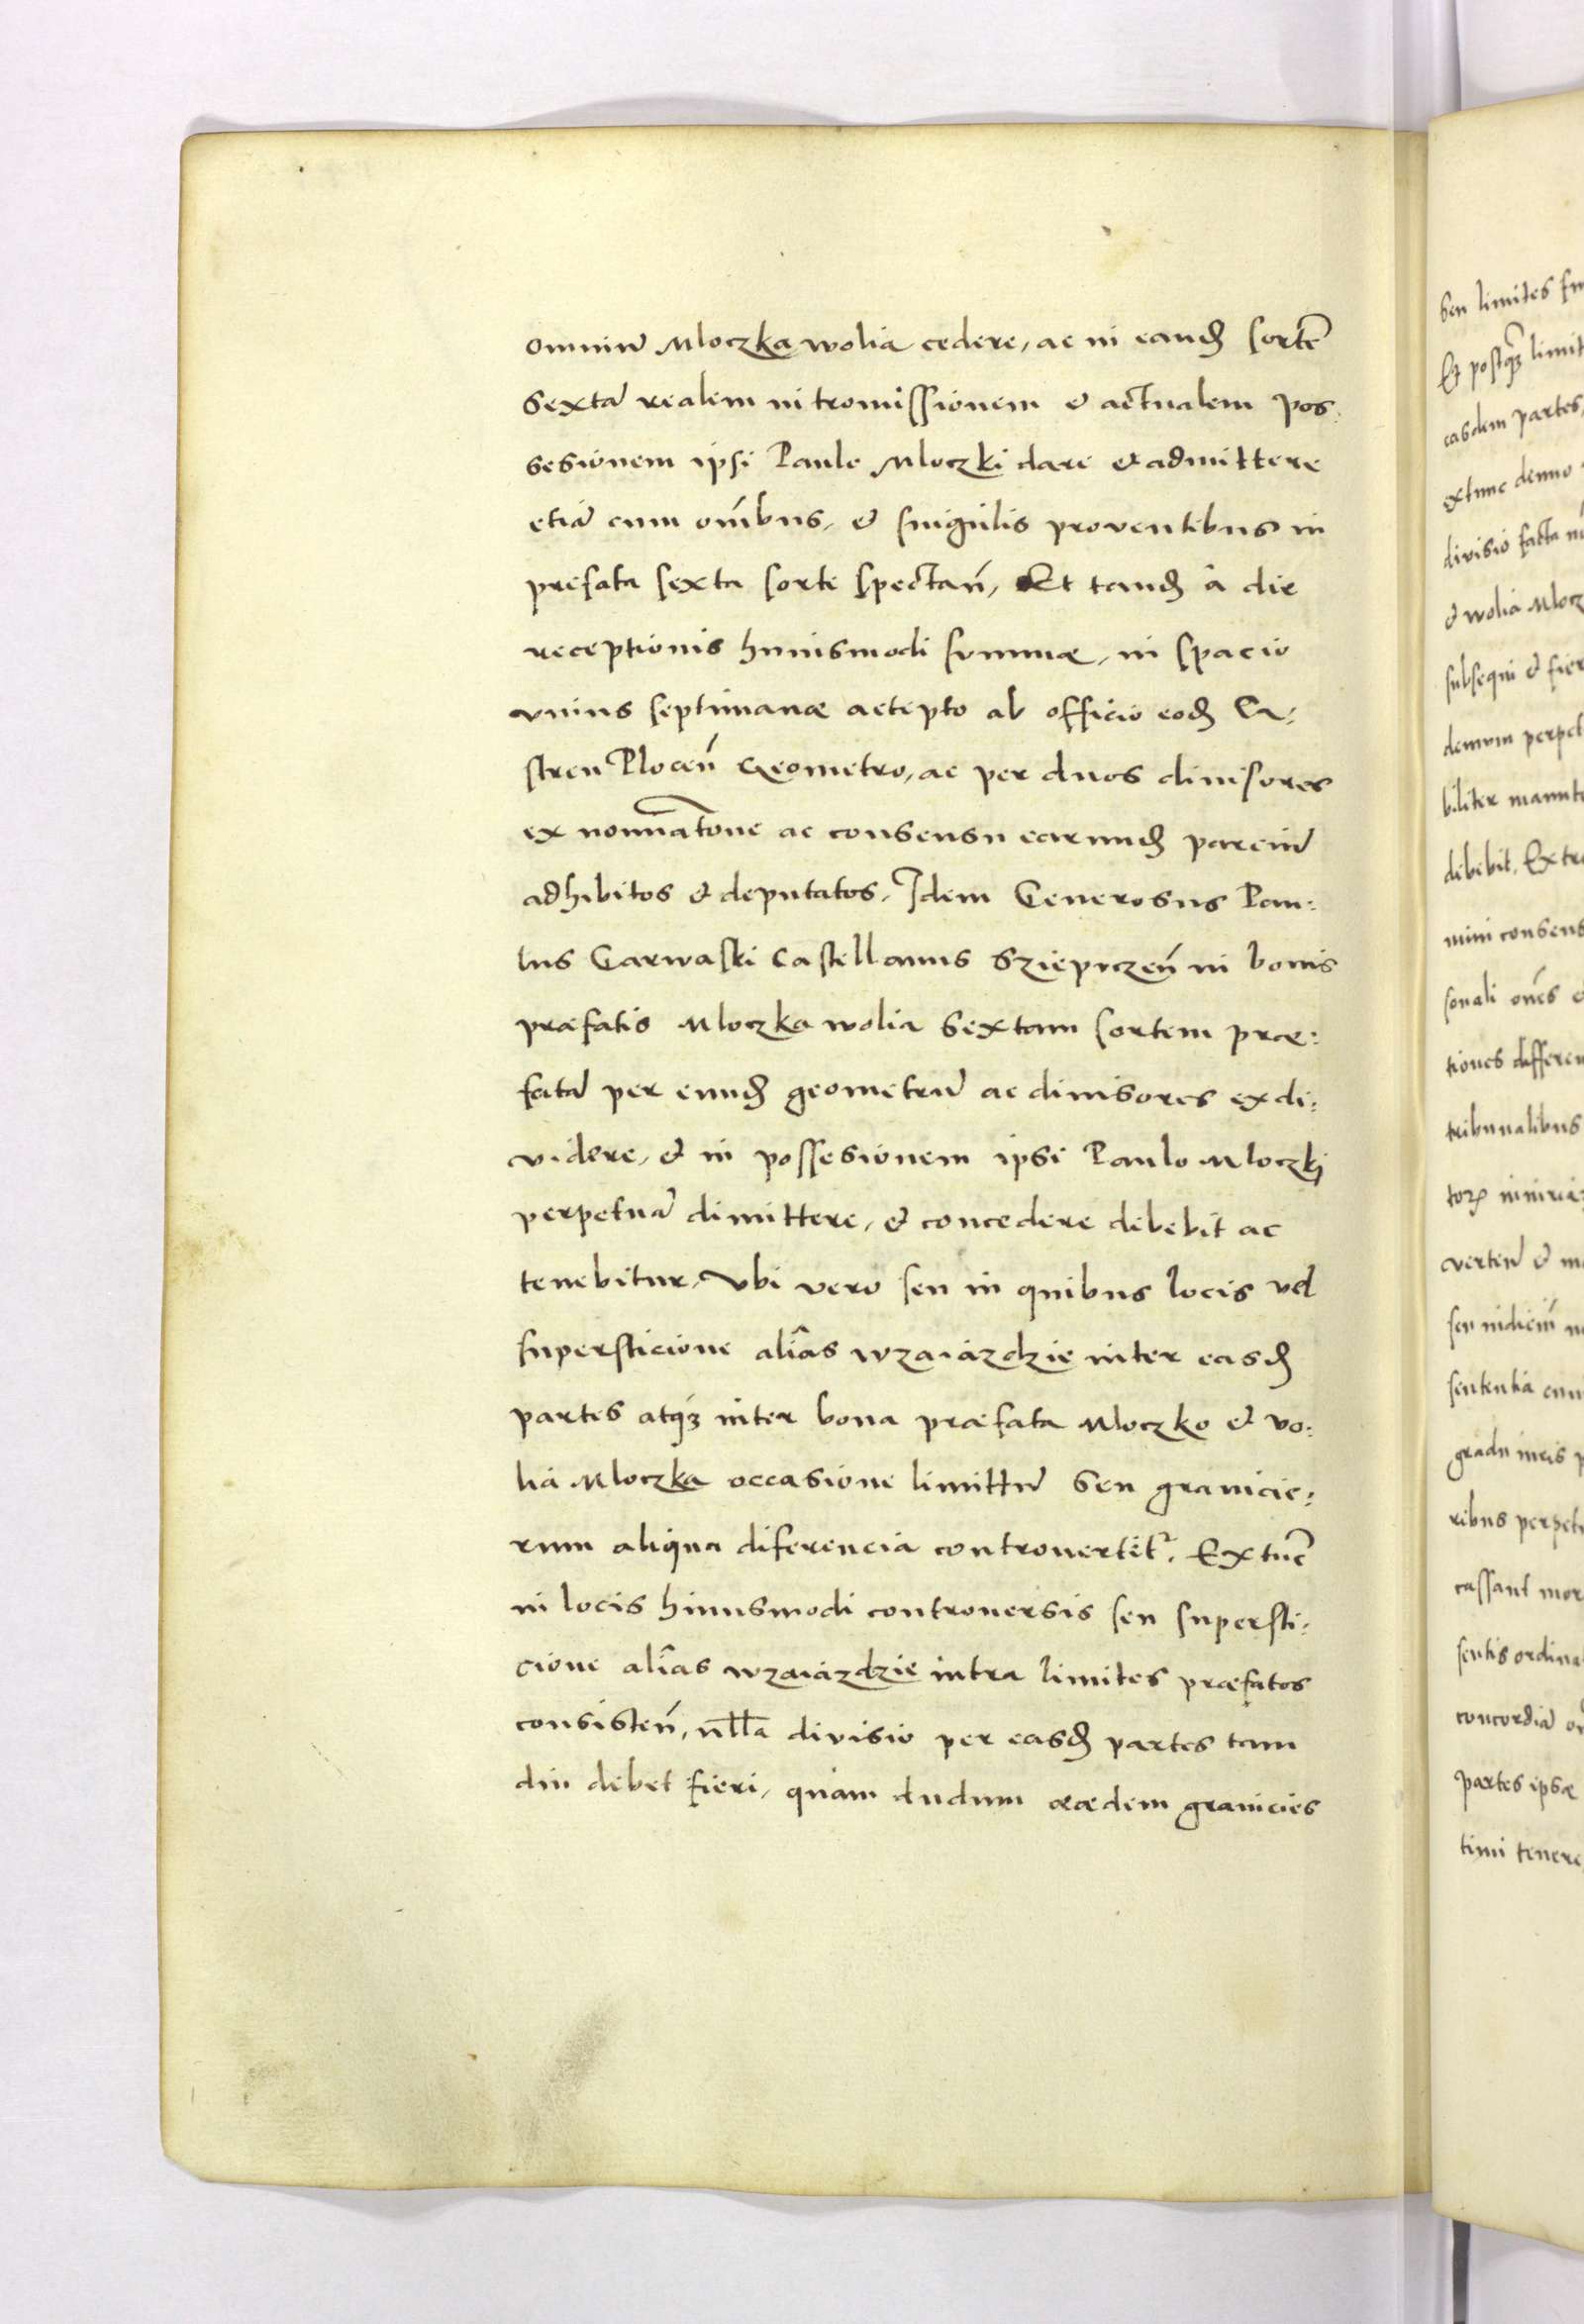 omniũ Mloczka wolia cedere, ac in eandẽ sortẽ
sextã realem intromissionem & actualem pos:
sesionem ipsi Paulo Mloczki dare et admittere
etiã cum omĩbus, & singulis proventibus in
prefata sexta sorte spectañ, Et tandẽ â die
receptionis huiusmodi summæ, in spacio
vnius septimanæ accepto ab officio eodẽ Ca:
stren Plocen̄ Geometro, ac per duos diuisores
ex nominatõne ac consensu earundẽ parciũ
adhibitos & deputatos. Idem Generosus Pau:
lus Garwaski Castellanus Sziepiczeñ in bonis
præfatis Mloczka wolia Sextam sortem præ:
fatã per eundẽ geometrũ ac diuisores ex di:
videre, & in possesionem ipsi Paulo Mloczkj
perpetuã dimittere, & concedere debebit ac
tenebitur. Vbi vero seu in quibus locis vel
supersticione aliâs wzaiazdzie inter easdẽ
partes atqꝫ inter bona præfata Mloczko & vo:
lia Mloczka occasione limittũ seu granicie:
rum aliqua diferencia controuertet᷑. Extũc
in locis huiusmodi controuersis seu supersti:
cione aliâs wzaiazdzie intra limites præfatos
consisteñ, nlla divisio per easdẽ partes tam
diu debet fieri, quam dudum eædem granicies
ben limites
Et postqꝫ limit
easdem partes,
extunc denuo
divisio facta
& wolia Mlocz
subsequi & fier
demum perpet
biliter manute
debebit. Extra
mini consens
sonali oñes &
tiones differen
tribunalibus
vertenũ &
sententia cum
gradu iuris p
ribus perpet
cassant mor
sentis ordina
concordiã
partes ipsæ
timi tenere,